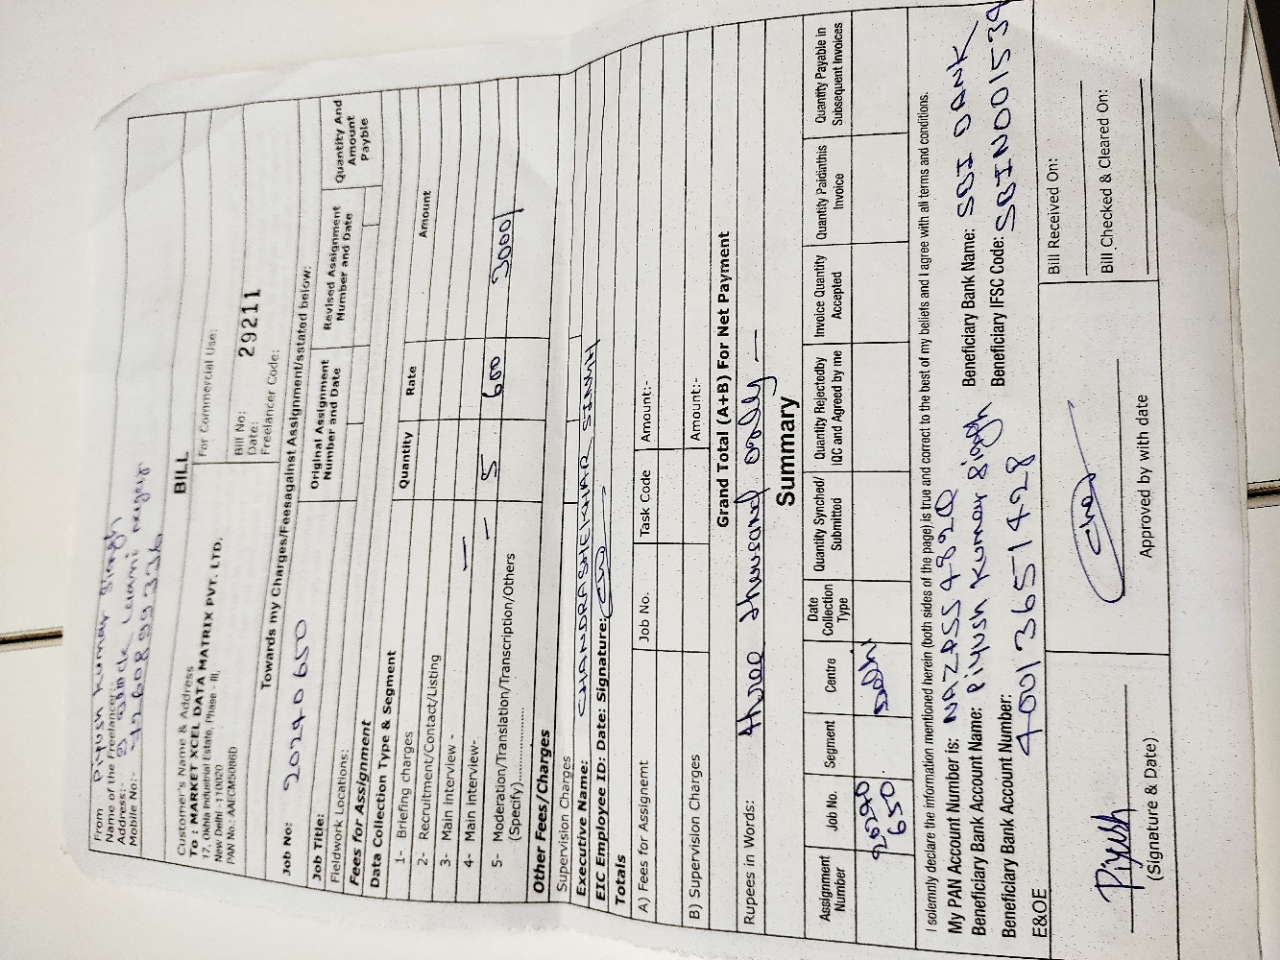 From Piyush Kumar Singh
Name of the Freelancer:
Address:-
Mobile No:-
BILL
Customer's Name & Address
To : MARKET XCEL DATA MATRIX PVT. LTD.
17, Okhla Industrial Estate, Phase - III,
New Delhi - 110020
PAN No.: AAECM5086D
For Commercial Use:
Bill No: 29211
Date:
Freelancer Code:
Towards my Charges/Feesagainst Assignment/sstated below:
Job No: 20240650
Job Title:
Original Assignment Number and Date
Revised Assignment Number and Date
Quantity And Amount Payble
Fieldwork Locations:
Fees for Assignment
Data Collection Type & Segment Quantity Rate Amount
1- Briefing charges
2- Recruitment/Contact/Listing
3- Main interview -
4- Main interview-
5- Moderation/Translation/Transcription/Others 5 600 3000/
(Specify)................
Other Fees/Charges
Supervision Charges
Executive Name: CHANDRASHEKHAR SINGH
EIC Employee ID: Date: Signature:
Totals
Job No. Task Code
A) Fees for Assignemt Amount:-
B) Supervision Charges Amount:-
Grand Total (A+B) For Net Payment
Rupees in Words: three thousand only
Summary
Assignment Number Job No. Segment Centre Date Collection Type Quantity Synched/ Submitted Quantity Rejectedby IQC and Agreed by me Invoice Quantity Accepted Quantity Paidinthis Invoice Quantity Payable in Subsequent Invoices
20240 Delhi
650
I solemnly declare the information mentioned herein (both sides of the page) is true and correct to the best of my beliefs and I agree with all terms and conditions.
My PAN Account Number is: NAZPSS4820
Beneficiary Bank Account Name: Piyush Kumar Singh Beneficiary Bank Name: SBI BANK
Beneficiary Bank Account Number: 40013651428 Beneficiary IFSC Code: SBIN001539
E&OE
Piyush
(Signature & Date)
Approved by with date
Bill Received On:
Bill Checked & Cleared On: